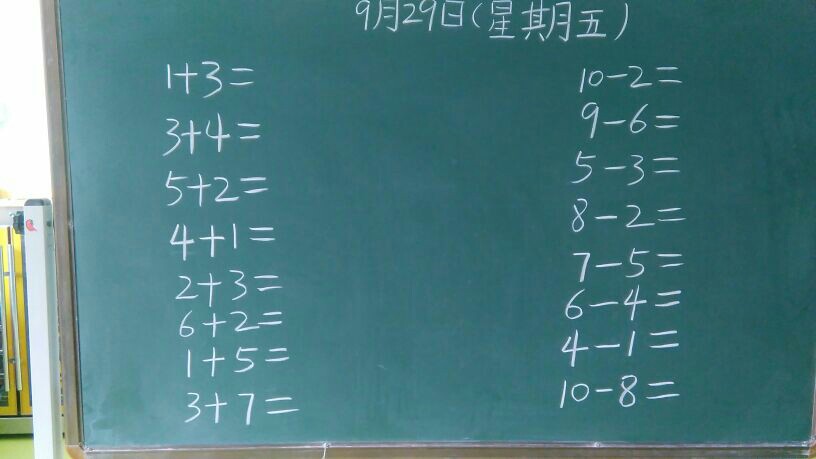 9月29日(星期五)
1+3=
3+4=
5+2=
4+1=
2+3=
6+2=
1+5=
3+7=
10-2=
9-6=
5-3=
8-2=
7-5=
6-4=
4-1=
10-8=